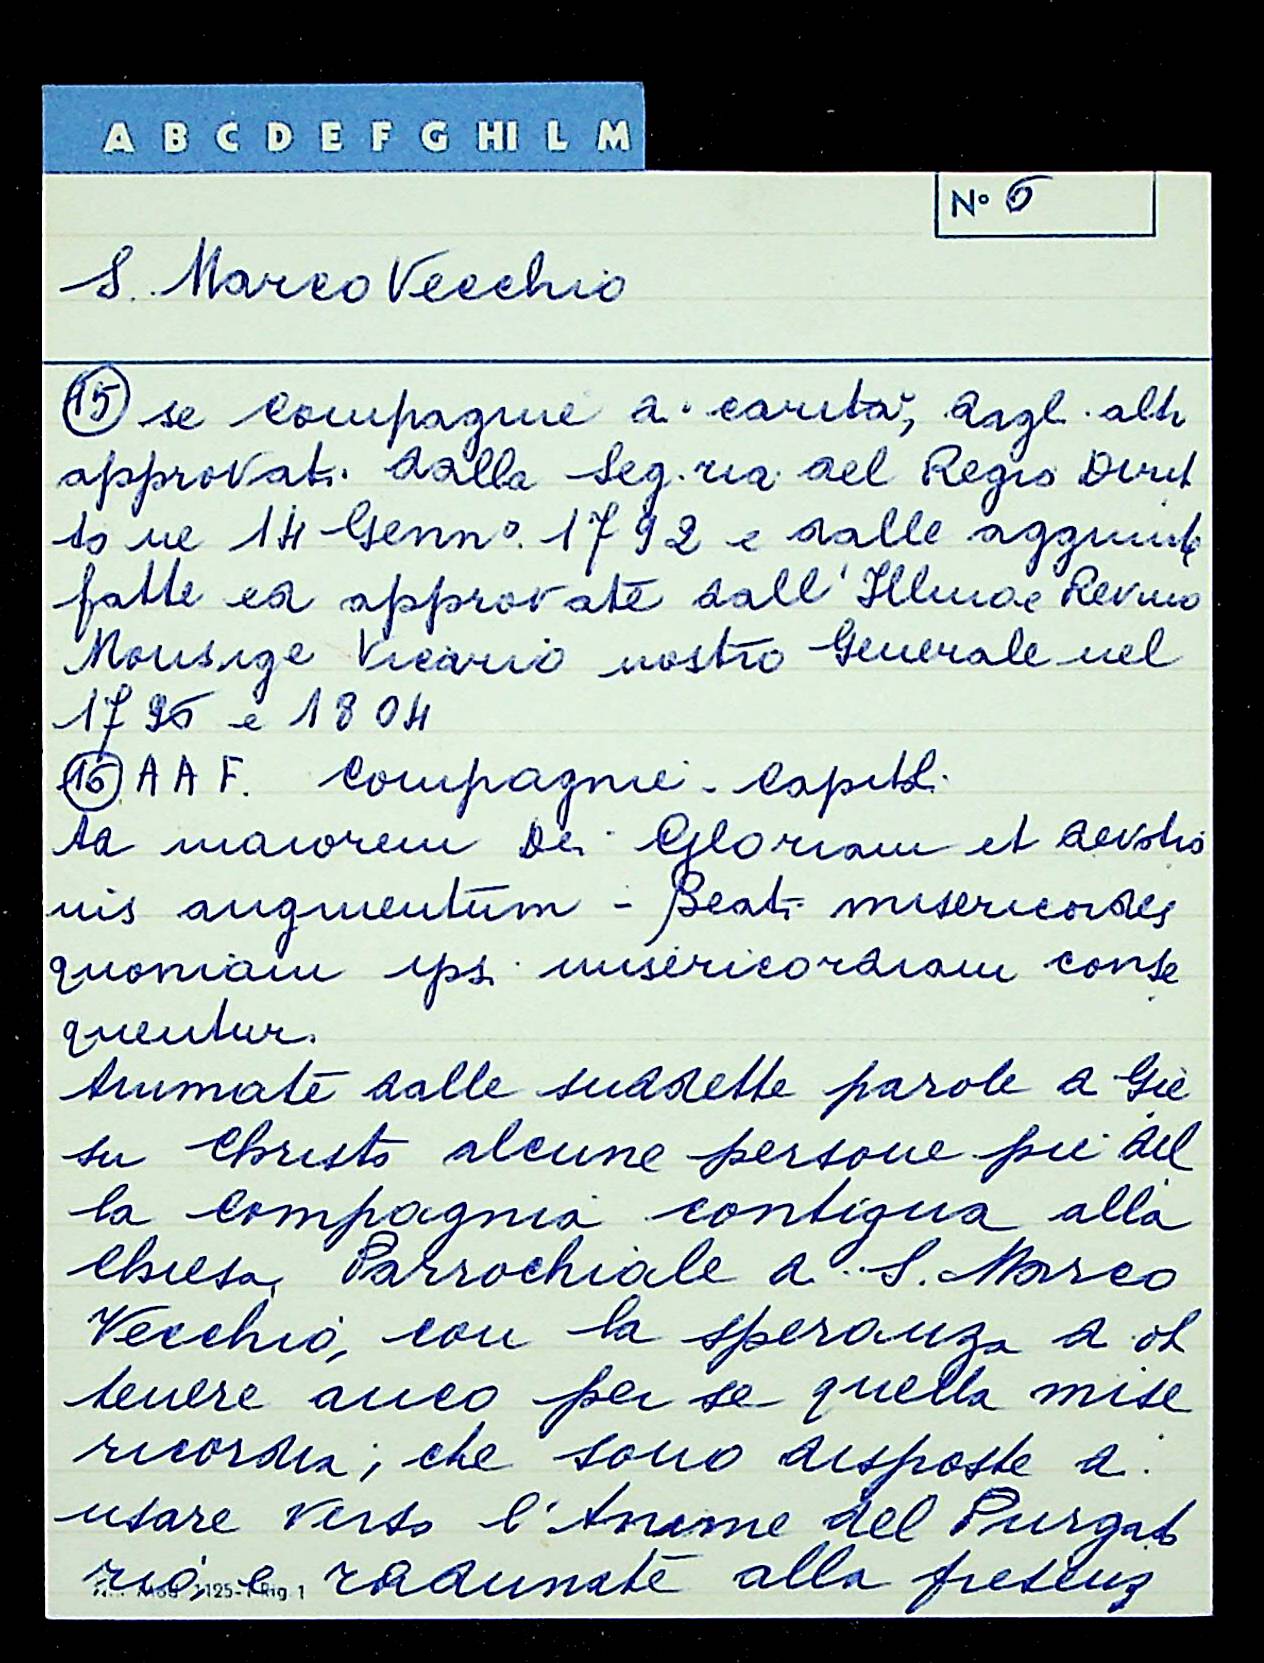 A B C D E F G HI L M
N° 6
S. Marco Vecchio
15 se compagnie di carità, dagli altri
approvati dalla Seg.ria del Regio Dirit
to ne 14 Genn°. 1792 e dalle aggiunte
fatte ed approvate dall' Illmo e Revmo
Monsige Vicario nostro Generale nel
1796 e 1804
16 A A F. Compagnie - Capitoli
Ad maiorem Dei Gloriam et devotio
nis augmentum - Beati misericordes
quoniam ipsi misericordiam conse
quentur.
Animate dalle suddette parole di Gie
su Christo alcune persone pie del
la compagnia contigua alla
Chiesa Parrochiale di S. Marco
Vecchio, con la speranza di ot
tenere anco per se quella mise
ricordia; che sono disposte di
usare verso l'Anime del Purgato
rio, e radunate alla presenz